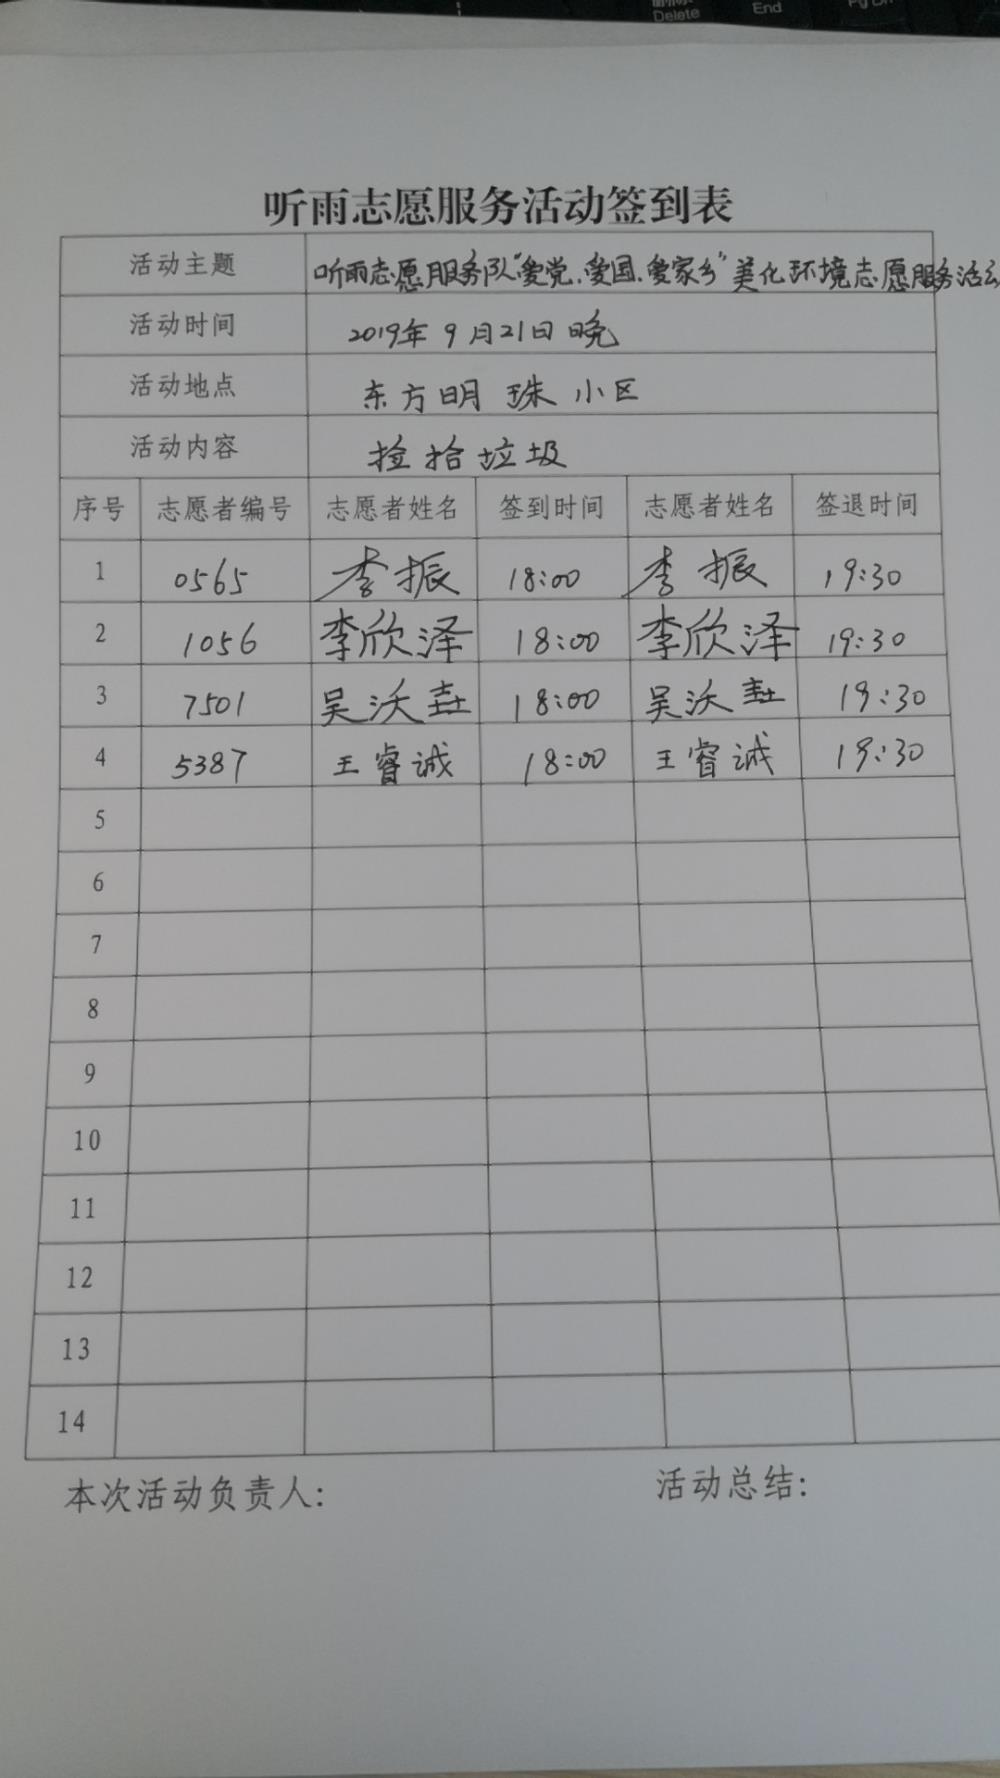 Delete
End
听雨志愿服务活动签到表
活动主题 听雨志愿服务队"爱党、爱国、爱家乡"美化环境志愿服务活动
活动时间 2019年9月21日晚
活动地点 东方明珠小区
活动内容 捡拾垃圾
序号 志愿者编号 志愿者姓名 签到时间 志愿者姓名 签退时间
1 0565 李振 18:00 李振 19:30
2 1056 李欣泽 18:00 李欣泽 19:30
3 7501 吴沃 18:00 吴沃 19:30
4 5387 王睿诚 18:00 王睿诚 19:30
5
6
7
8
9
10
11
12
13
14
本次活动负责人: 活动总结: